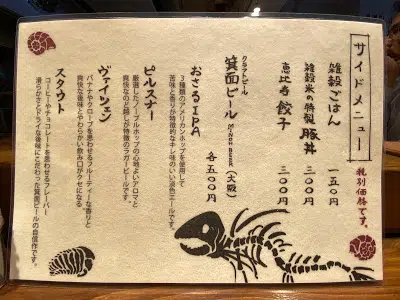 サイドメニュー
税別価格です。
雑穀ごはん 一五〇円
雑穀米の特製豚丼 三〇〇円
恵比寿餃子 三〇〇円
クラフトビール
箕面ビール MINOH BEER (大阪)
各五〇〇円
おさるIPA
3種類のアメリカンホップを使用して
苦味と香りが特徴的なキレ味のいい淡色エールです。
ピルスナー
厳選したノーブルホップの心地よいアロマと
爽快なのど越しが特徴のラガービールです。
ヴァイツェン
バナナやクローブを思わせるフルーティーな香りと
爽快な後味とやわらかい飲み口がクセになる
スタウト
コーヒーやチョコレートを思わせるフレーバー
滑らかさとドライな後味にこだわった箕面ビールの自信作です。